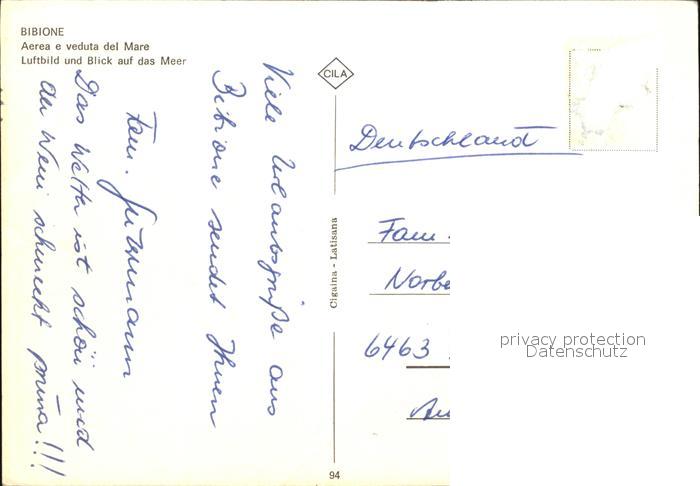 BIBIONE
Aerea e veduta del Mare
Luftbild und Blick auf das Meer
CILA
Viele Urlaubsgrüße aus
Bibione sendet Ihnen
Fam.
Das Wetter ist schön und
der Wein schmeckt prima!!!
Cigaina - Latisana
Deutschland
Fam.
Norbe
6463
94
privacy protection
Datenschutz